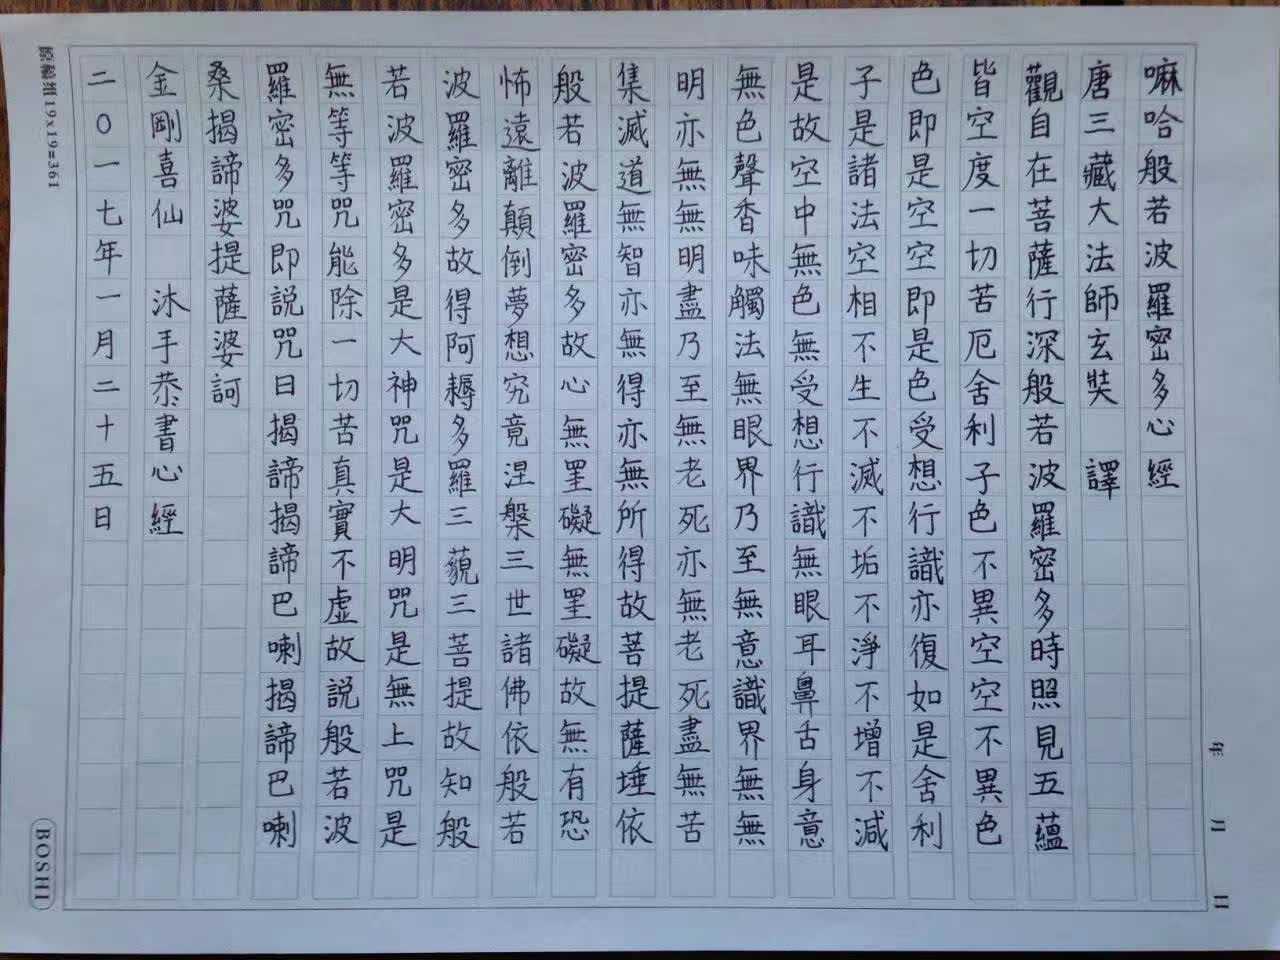 嘛哈般若波羅密多心經
唐三藏大法師玄奘 譯
觀自在菩薩行深般若波羅密多時照見五蘊
皆空度一切苦厄舍利子色不異空空不異色
色即是空空即是色受想行識亦復如是舍利
子是諸法空相不生不滅不垢不淨不增不減
是故空中無色無受想行識無眼耳鼻舌身意
無色聲香味觸法無眼界乃至無意識界無無
明亦無無明盡乃至無老死亦無老死盡無苦
集滅道無智亦無得亦無所得故菩提薩埵依
般若波羅密多故心無罣礙無罣礙故無有恐
怖遠離顛倒夢想究竟涅槃三世諸佛依般若
波羅密多故得阿耨多羅三藐三菩提故知般
若波羅密多是大神咒是大明咒是無上咒是
無等等咒能除一切苦真實不虛故説般若波
羅密多咒即説咒曰揭諦揭諦巴喇揭諦巴喇
桑揭諦婆提薩婆訶
金剛喜仙 沐手恭書心經
二〇一七年一月二十五日
原稿纸19x19=361
BOSHI
年 月 日